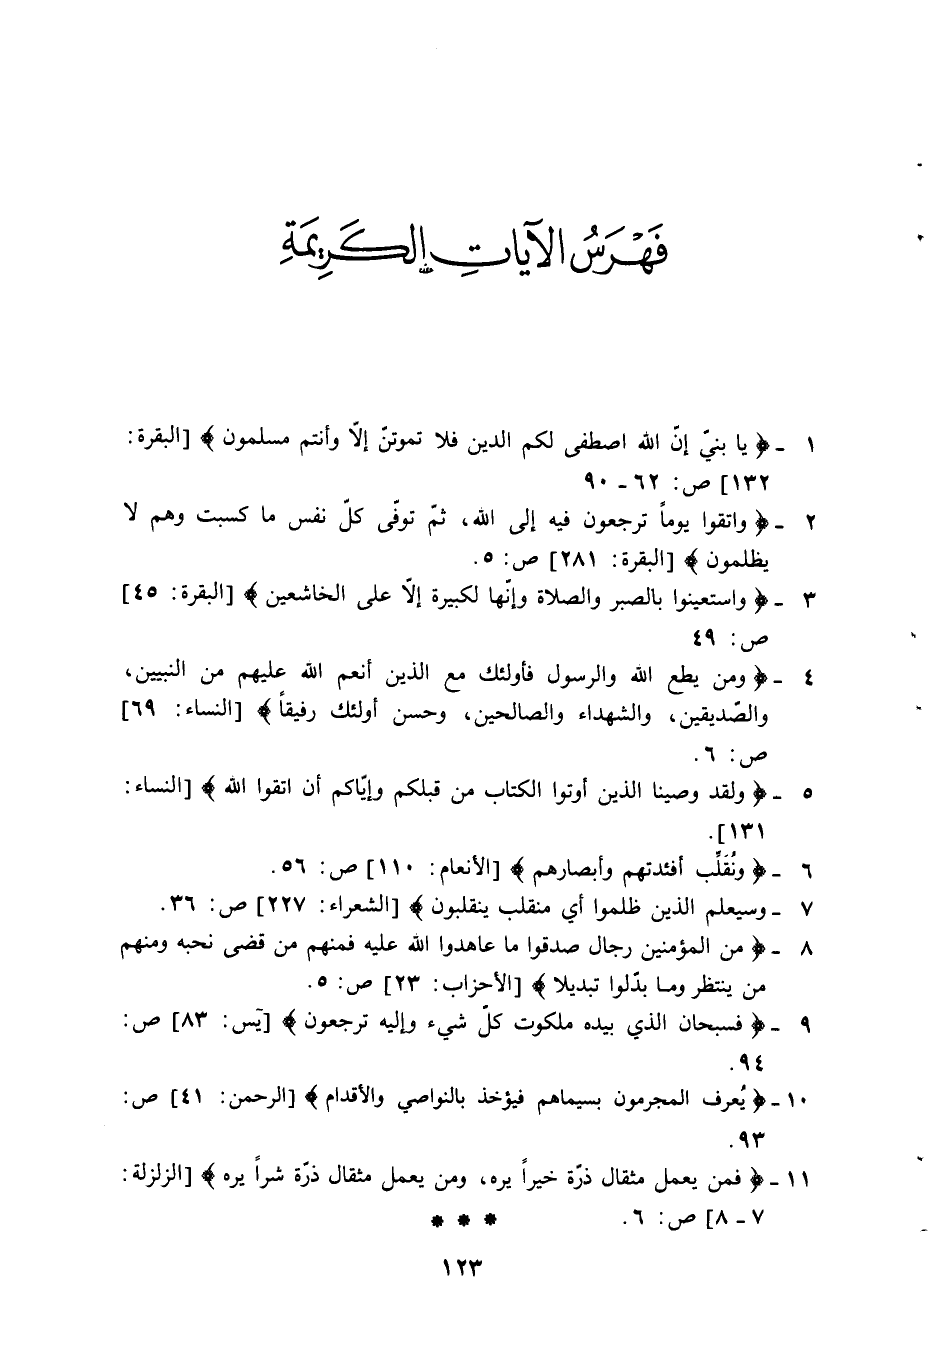 فَهْرَسُ الآيَاتِ الكَرِيمَةِ
١ - ﴿ يا بنيّ إنّ الله اصطفى لكم الدين فلا تموتنّ إلّا وأنتم مسلمون ﴾ [البقرة:
١٣٢] ص: ٦٢ - ٩٠
٢ - ﴿ واتقوا يوماً ترجعون فيه إلى الله، ثمّ توفّى كلّ نفس ما كسبت وهم لا
يظلمون ﴾ [البقرة: ٢٨١] ص: ٥.
٣ - ﴿ واستعينوا بالصبر والصلاة وإنّها لكبيرة إلّا على الخاشعين ﴾ [البقرة: ٤٥]
ص: ٤٩
٤ - ﴿ ومن يطع الله والرسول فأولئك مع الذين أنعم الله عليهم من النبيين،
والصّديقين، والشهداء والصالحين، وحسن أولئك رفيقاً ﴾ [النساء: ٦٩]
ص: ٦.
٥ - ﴿ ولقد وصينا الذين أوتوا الكتاب من قبلكم وإيّاكم أن اتقوا الله ﴾ [النساء:
١٣١].
٦ - ﴿ ونُقَلِّب أفئدتهم وأبصارهم ﴾ [الأنعام: ١١٠] ص: ٥٦.
٧ - وسيعلم الذين ظلموا أي منقلب ينقلبون ﴾ [الشعراء: ٢٢٧] ص: ٣٦.
٨ - ﴿ من المؤمنين رجال صدقوا ما عاهدوا الله عليه فمنهم من قضى نحبه ومنهم
من ينتظر وما بدّلوا تبديلا ﴾ [الأحزاب: ٢٣] ص: ٥.
٩ - ﴿ فسبحان الذي بيده ملكوت كلّ شيء وإليه ترجعون ﴾ [يَس: ٨٣] ص:
٩٤.
١٠ - ﴿ يُعرف المجرمون بسيماهم فيؤخذ بالنواصي والأقدام ﴾ [الرحمن: ٤١] ص:
٩٣.
١١ - ﴿ فمن يعمل مثقال ذرّة خيراً يره، ومن يعمل مثقال ذرّة شراً يره ﴾ [الزلزلة:
٧ - ٨] ص: ٦.
* * *
١٢٣